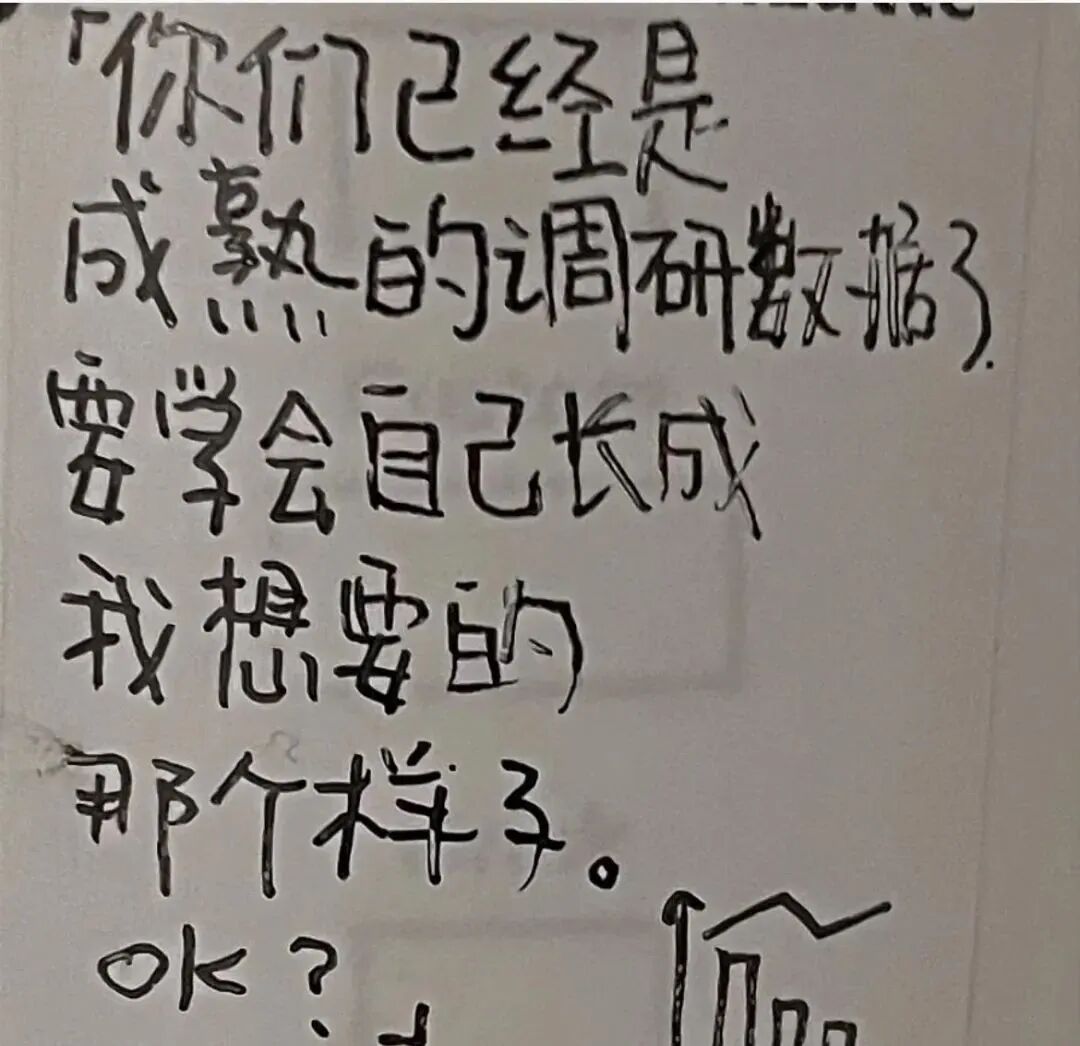 「你们已经是
成熟的调研数据了.
要学会自己长成
我想要的
那个样子。
OK?」